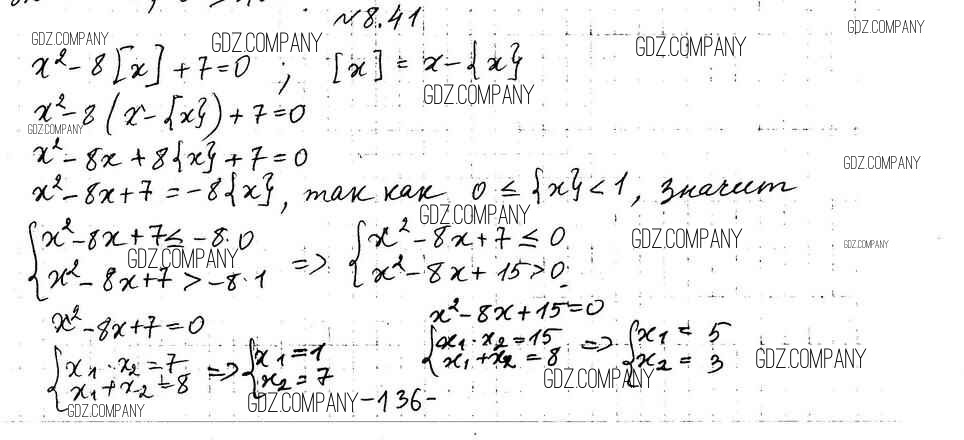 N 8.41
GDZ.COMPANY GDZ.COMPANY GDZ.COMPANY GDZ.COMPANY
x² - 8[x] + 7 = 0 ; [x] = x - {x}
GDZ.COMPANY
x² - 8(x - {x}) + 7 = 0
GDZ.COMPANY
x² - 8x + 8{x} + 7 = 0
GDZ.COMPANY
x² - 8x + 7 = -8{x}, так как 0 ≤ {x} < 1, значит
GDZ.COMPANY
{x² - 8x + 7 ≤ -8·0 {x² - 8x + 7 ≤ 0
GDZ.COMPANY GDZ.COMPANY GDZ.COMPANY
x² - 8x + 7 > -8·1 => x² - 8x + 15 > 0
x² - 8x + 7 = 0 x² - 8x + 15 = 0
{x₁ · x₂ = 7 => {x₁ = 1 {x₁ · x₂ = 15 => {x₁ = 5
x₁ + x₂ = 8 x₂ = 7 x₁ + x₂ = 8 x₂ = 3
GDZ.COMPANY GDZ.COMPANY
GDZ.COMPANY GDZ.COMPANY -136-